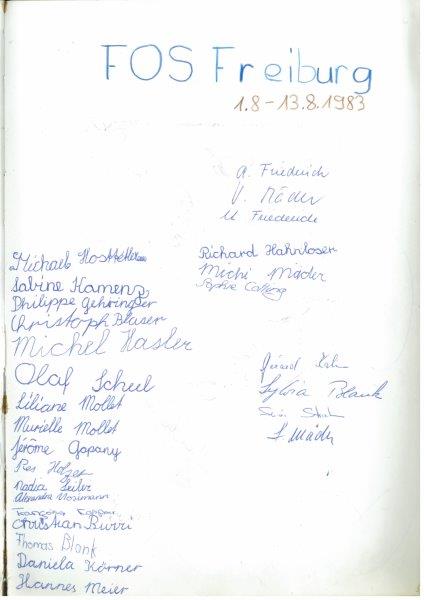 FOS Freiburg
1.8-13.8.1983
A. Friederich
V. Mäder
M Friederich
Michael Hostettler
Sabine Kamenz
Philippe Gehringer
Christoph Blaser
Michel Hasler
Olaf Scheel
Liliane Mollet
Murielle Mollet
Jérôme Gapany
Nadia Seiler
Alexandra Mosimann
Christian Burri
Thomas Blank
Daniela Körner
Hannes Meier
Richard Hahnloser
Michi Mäder
Sylvia Blank
S Mäder